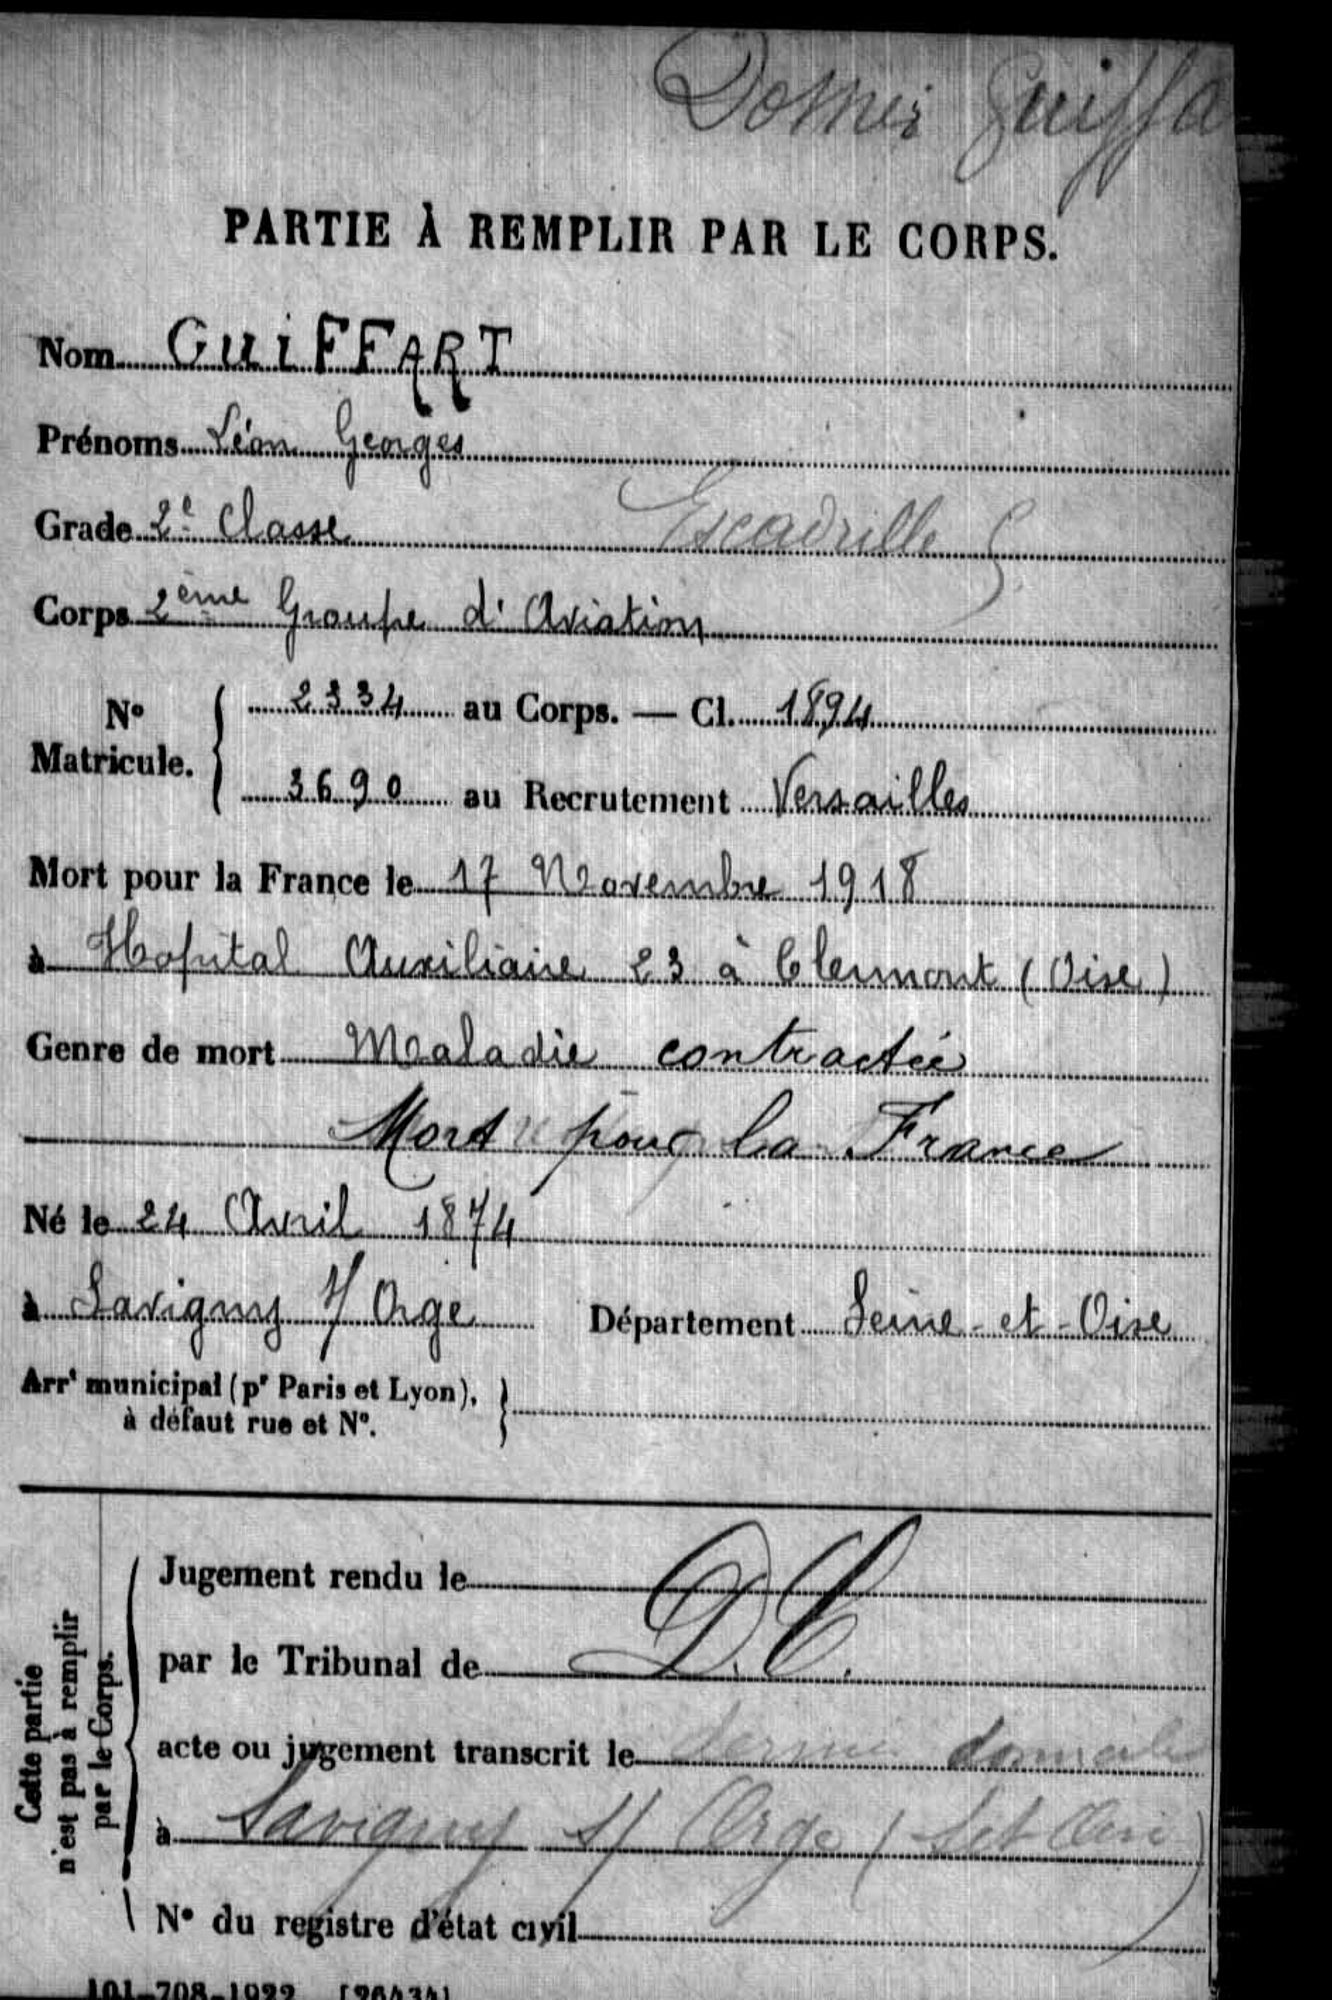 PARTIE À REMPLIR PAR LE CORPS.
Nom GUIFFART
Prénoms Léon Georges
Grade 2e Classe Escadrille
Corps 2ème Groupe d'Aviation
N° Matricule. 2334 au Corps. — Cl. 1894
3690 au Recrutement Versailles
Mort pour la France le 17 Novembre 1918
à Hopital Auxiliaire 23 à Clermont (Oise)
Genre de mort Maladie contractée
Mort pour la France
Né le 24 Avril 1874
à Savigny s/ Orge Département Seine-et-Oise
Arrt municipal (pr Paris et Lyon),
à défaut rue et N°.
Cette partie
n'est pas à remplir
par le Corps.
Jugement rendu le
par le Tribunal de D.C.
acte ou jugement transcrit le dernier domicile
à Savigny s/ Orge (S et Oise)
N° du registre d'état civil
101-708-1922 [26434]